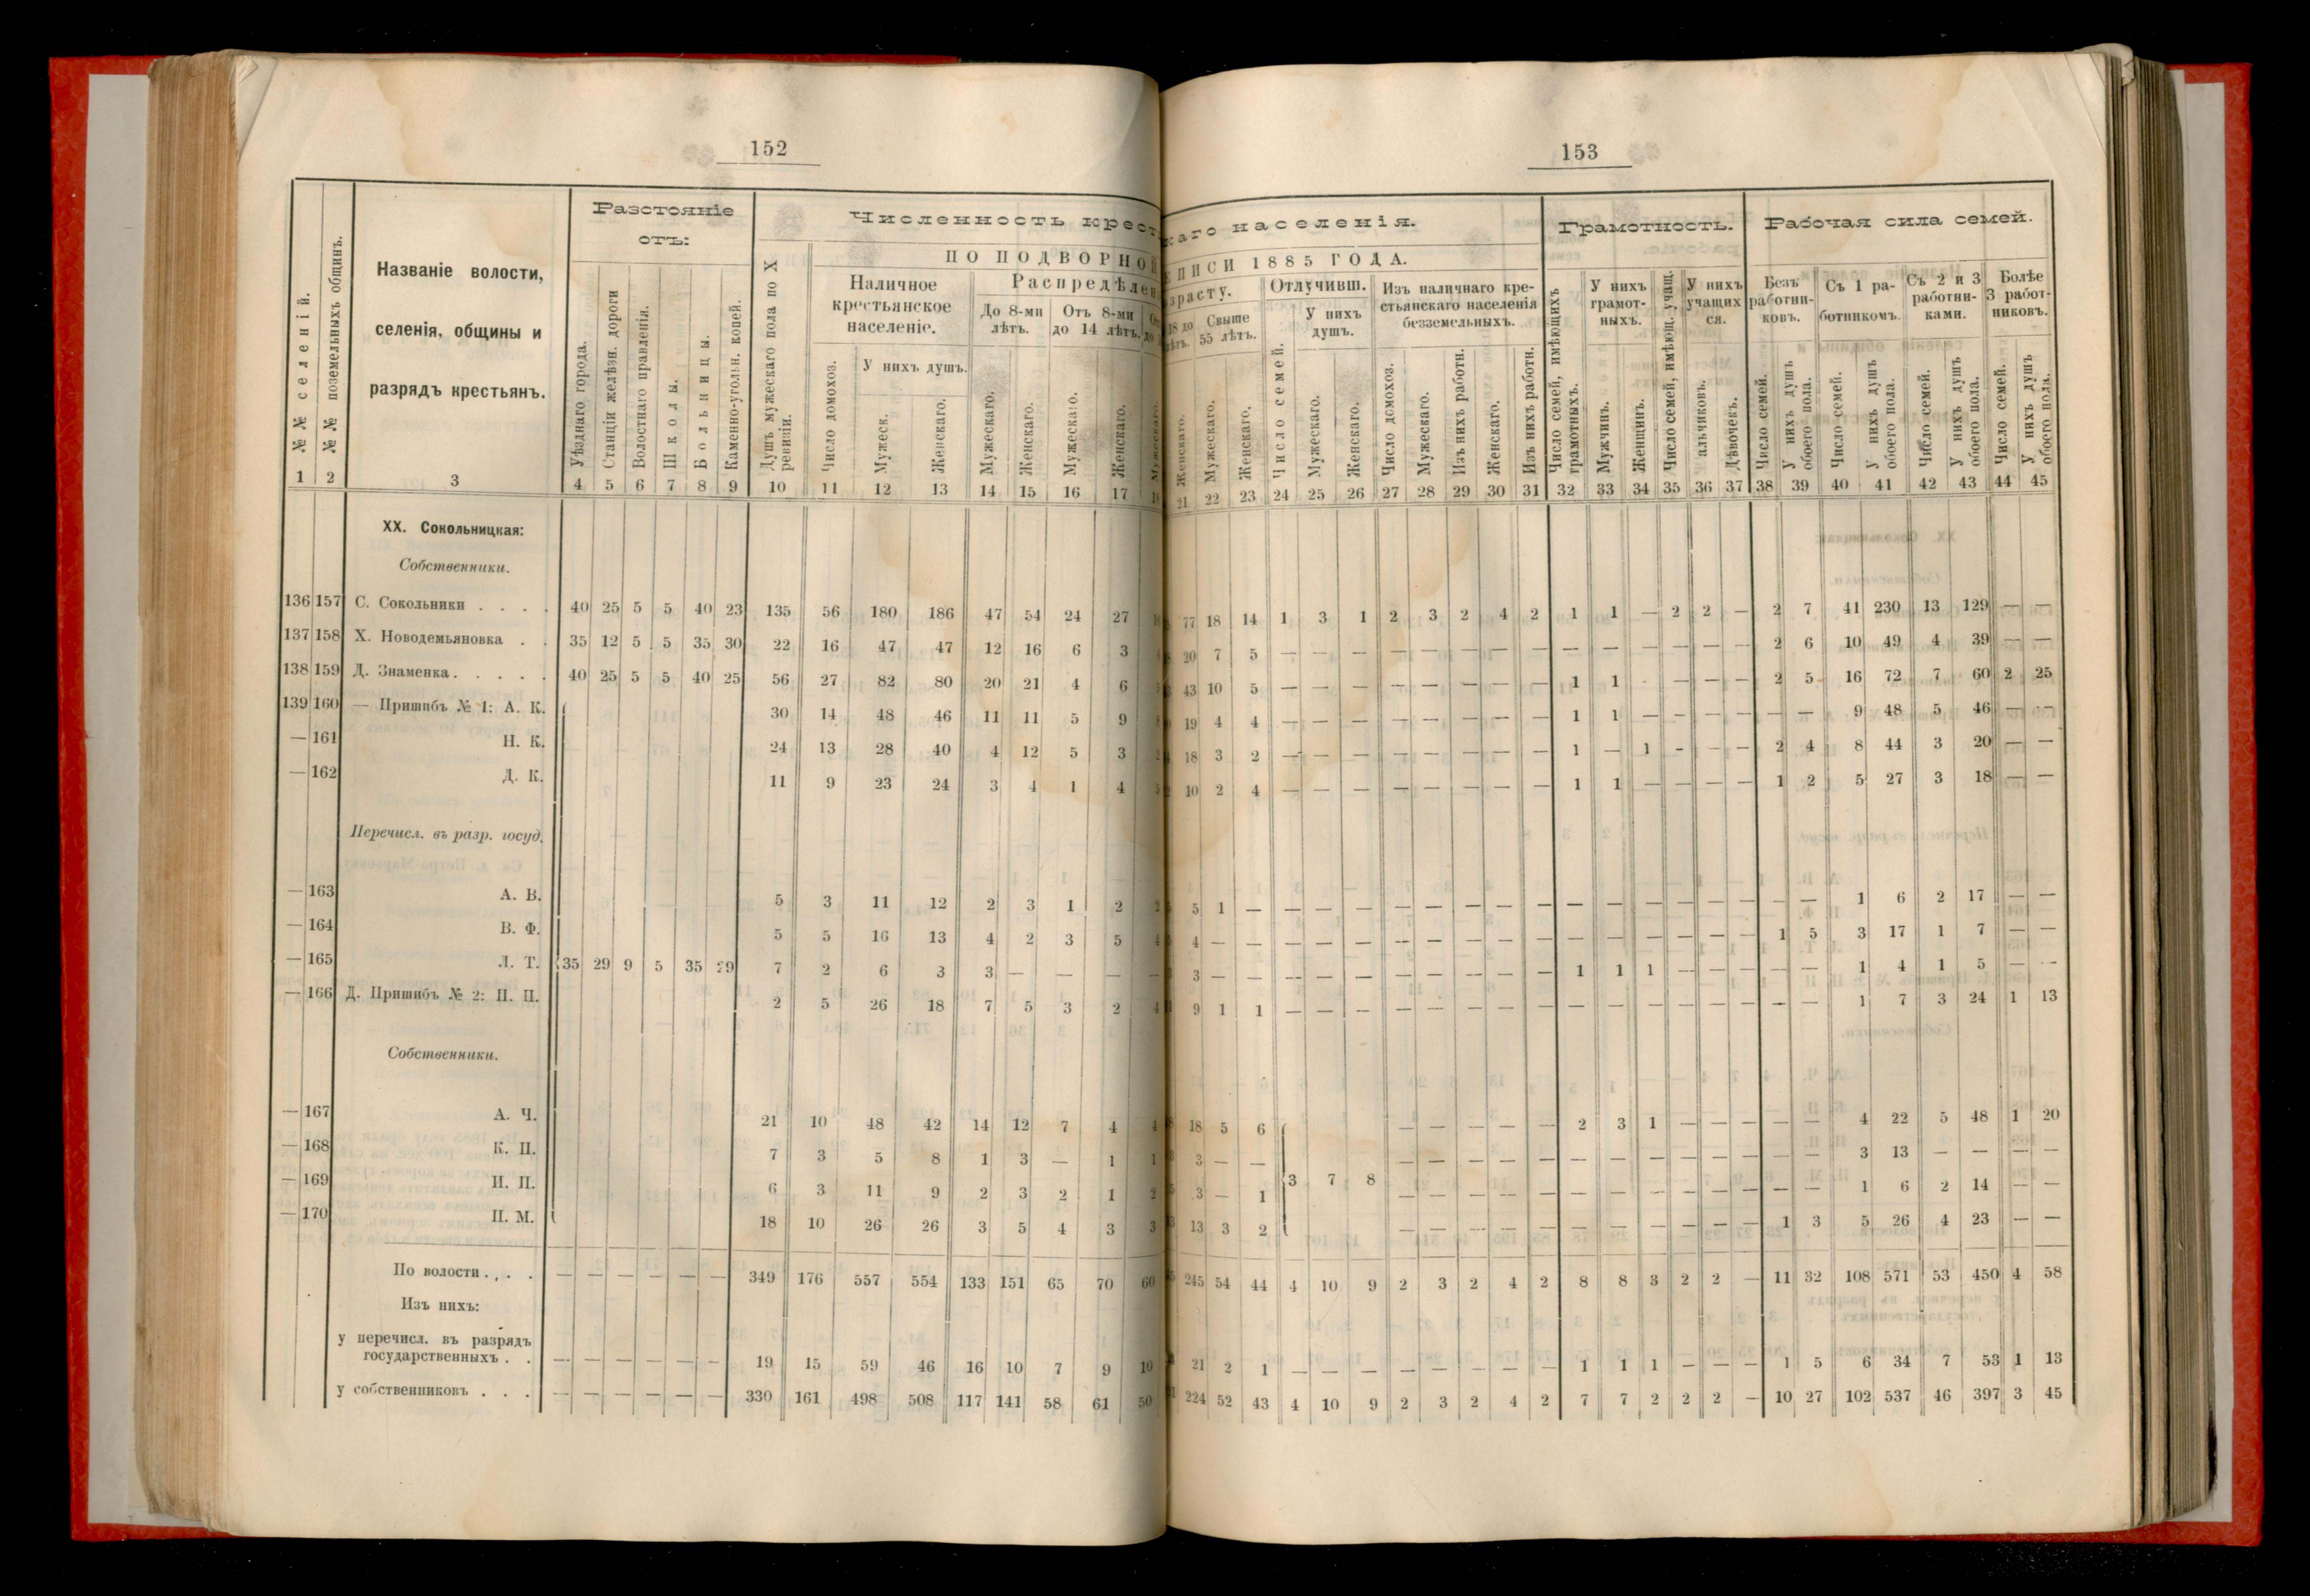 152
Разстояніе
отъ:
Численность крест
ПО ПОДВОРНОЙ
Наличное
крестьянское
населеніе.
Распредѣлен
До 8-ми
лѣтъ.
Отъ 8-ми
до 14 лѣтъ.
У нихъ душъ.
№№ селеній.
№№ поземельныхъ общинъ.
Названіе волости,
селенія, общины и
разрядъ крестьянъ.
Уѣзднаго города.
Станціи желѣзн. дороги
Волостнаго правленія.
Школы.
Больницы.
Каменно-угольн. копей.
Душъ мужескаго пола по X
ревизіи.
Число домохоз.
Мужеск.
Женскаго.
Мужескаго.
Женскаго.
Мужескаго.
Женскаго.
1 2 3 4 5 6 7 8 9 10 11 12 13 14 15 16 17
XX. Сокольницкая:
Собственники.
136 157 С. Сокольники . . . . 40 25 5 5 40 23 135 56 180 186 47 54 24 27
137 158 Х. Новодемьяновка . . 35 12 5 5 35 30 22 16 47 47 12 16 6 3
138 159 Д. Знаменка . . . . . 40 25 5 5 40 25 56 27 82 80 20 21 4 6
139 160 — Пришибъ № 1: А. К. 30 14 48 46 11 11 5 9
— 161 Н. К. 24 13 28 40 4 12 5 3
— 162 Д. К. 11 9 23 24 3 4 1 4
Перечисл. въ разр. госуд.
— 163 А. В. 5 3 11 12 2 3 1 2
— 164 В. Ф. 5 5 16 13 4 2 3 5 4
— 165 Л. Т. 35 29 9 5 35 29 7 2 6 3 3 — — — —
— 166 Д. Пришибъ № 2: П. П. 2 5 26 18 7 5 3 2 4
Собственники.
— 167 А. Ч. 21 10 48 42 14 12 7 4 4
— 168 К. П. 7 3 5 8 1 3 — 1 1
— 169 И. П. 6 3 11 9 2 3 2 1 2
— 170 П. М. 18 10 26 26 3 5 4 3 3
По волости . . . . — — — — — — 349 176 557 554 133 151 65 70 60
Изъ нихъ:
у перечисл. въ разрядъ
государственныхъ . . — — — — — — 19 15 59 46 16 10 7 9 10
у собственниковъ . . . — — — — — — 330 161 498 508 117 141 58 61 50
153
каго населенія.
Грамотность.
Рабочая сила семей.
ПИСИ 1885 ГОДА.
зрасту.
18 до
лѣтъ.
Свыше
55 лѣтъ.
Отлучивш.
У нихъ
душъ.
Изъ наличнаго кре-
стьянскаго населенія
безземельныхъ.
У нихъ
грамот-
ныхъ.
У нихъ
учащих
ся.
Безъ
работни-
ковъ.
Съ 1 ра-
ботникомъ.
Съ 2 и 3
работни-
ками.
Болѣе
3 работ-
никовъ.
Женскаго.
Мужескаго.
Женскаго.
Число семей.
Мужескаго.
Женскаго.
Число домохоз.
Мужескаго.
Изъ нихъ работн.
Женскаго.
Изъ нихъ работн.
Число семей, имѣющихъ
грамотныхъ.
Мужчинъ.
Женщинъ.
Число семей, имѣющ. учащ.
альчиковъ.
Дѣвочекъ.
Число семей.
У нихъ душъ
обоего пола.
Число семей.
У нихъ душъ
обоего пола.
Число семей.
У нихъ душъ
обоего пола.
Число семей.
У нихъ душъ
обоего пола.
21 22 23 24 25 26 27 28 29 30 31 32 33 34 35 36 37 38 39 40 41 42 43 44 45
77 18 14 1 3 1 2 3 2 4 2 1 1 — 2 2 — 2 7 41 230 13 129 — —
20 7 5 — — — — — — — — — — — — — — 2 6 10 49 4 39 — —
43 10 5 — — — — — — — — 1 1 — — — — 2 5 16 72 7 60 2 25
19 4 4 — — — — — — — — 1 1 — — — — — — 9 48 5 46 — —
18 3 2 — — — — — — — — 1 — 1 — — — 2 4 8 44 3 20 — —
10 2 4 — — — — — — — — 1 1 — — — — 1 2 5 27 3 18 — —
5 1 — — — — — — — — — — — — — — — — — 1 6 2 17 — —
4 — — — — — — — — — — — — — — — — 1 5 3 17 1 7 — —
3 — — — — — — — — — — 1 1 1 — — — — — 1 4 1 5 — —
9 1 1 — — — — — — — — — — — — — — — — 1 7 3 24 1 13
18 5 6 — — — — — 2 3 1 — — — — — 4 22 5 48 1 20
3 — — — — — — — — — — — — — — — 3 13 — — — —
3 — 1 3 7 8 — — — — — — — — — — — — — 1 6 2 14 — —
13 3 2 — — — — — — — — — — — 1 3 5 26 4 23 — —
245 54 44 4 10 9 2 3 2 4 2 8 8 3 2 2 — 11 32 108 571 53 450 4 58
21 2 1 — — — — — — — — 1 1 1 — — — 1 5 6 34 7 53 1 13
224 52 43 4 10 9 2 3 2 4 2 7 7 2 2 2 — 10 27 102 537 46 397 3 45